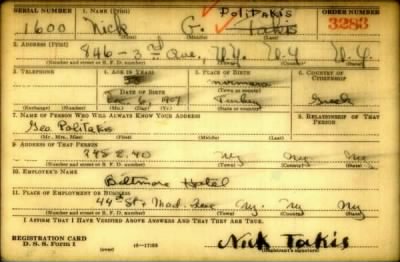 SERIAL NUMBER 1. NAME (Print) ORDER NUMBER
POLITAKIS
1600 Nick G. Takis 3283
(First) (Middle) (Last)
2. ADDRESS (Print)
846-3rd Ave., N.Y. N.Y N.Y.
(Number and street or R. F. D. number) (Town) (County) (State)
3. TELEPHONE 4. AGE IN YEARS 5. PLACE OF BIRTH 6. COUNTRY OF CITIZENSHIP
DATE OF BIRTH
6, 1907 Turkey Greek
(Exchange) (No.) (Mo.) (Day) (Yr.) (State or country)
7. NAME OF PERSON WHO WILL ALWAYS KNOW YOUR ADDRESS 8. RELATIONSHIP OF THAT PERSON
Geo. Politakis
(Mr., Mrs., Miss) (First) (Middle) (Last)
9. ADDRESS OF THAT PERSON
E. 40 Ny Ny Ny
(Number and street or R. F. D. number) (Town) (County) (State)
10. EMPLOYER'S NAME
Biltmore Hotel
11. PLACE OF EMPLOYMENT OR BUSINESS
44th St & Mad. Ave Ny. Ny. Ny
(Number and street or R. F. D. number) (Town) (County) (State)
I AFFIRM THAT I HAVE VERIFIED ABOVE ANSWERS AND THAT THEY ARE TRUE.
REGISTRATION CARD
D. S. S. Form 1 Nick Takis
(Registrant's signature)